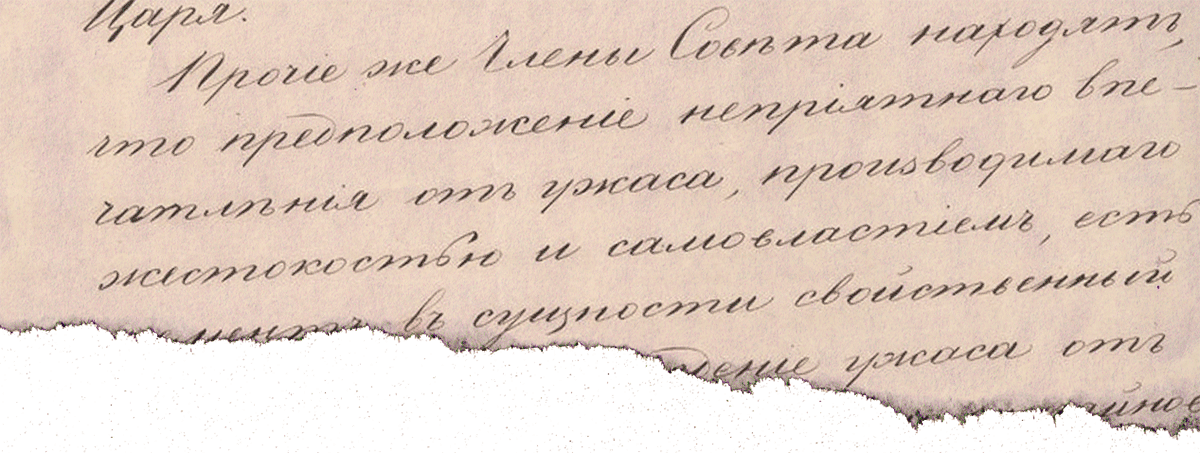 Царя.
Прочіе же Члены Совѣта находятъ,
что предположеніе непріятнаго впе-
чатлѣнія отъ ужаса, производимаго
жестокостью и самовластіемъ, есть
въ сущности свойственный
ужаса отъ